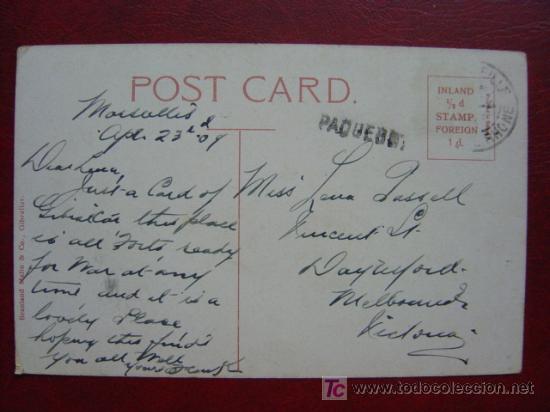 POST CARD.
INLAND
½ d
STAMP.
FOREIGN
1 d.
PAQUEBOT
Marseilles
Apl 23rd 09
Dear Lena,
Just a Card of
Gibraltar this place
is all Forts ready
for War at any
time, and it is a
lovely Place
hoping this finds
you all Well
Yours
Miss Lena
Vincent St
Daylesford
Melbourne
Victoria
Beanland Malin & Co., Gibraltar.
TC
todocoleccion.net